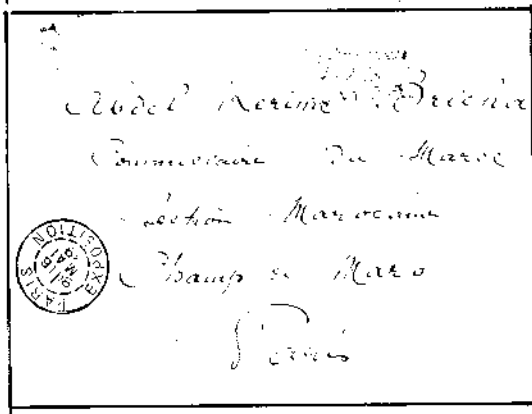 Abdel Kerim
Commissaire du Maroc
Section Marocaine
Champ de Mars
Paris
PARIS EXPOSITION